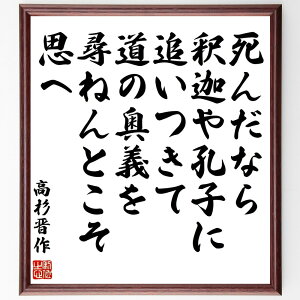 死んだなら
釈迦や孔子に
追いつきて
道の奥義を
尋ねんとこそ
思へ
高杉晋作